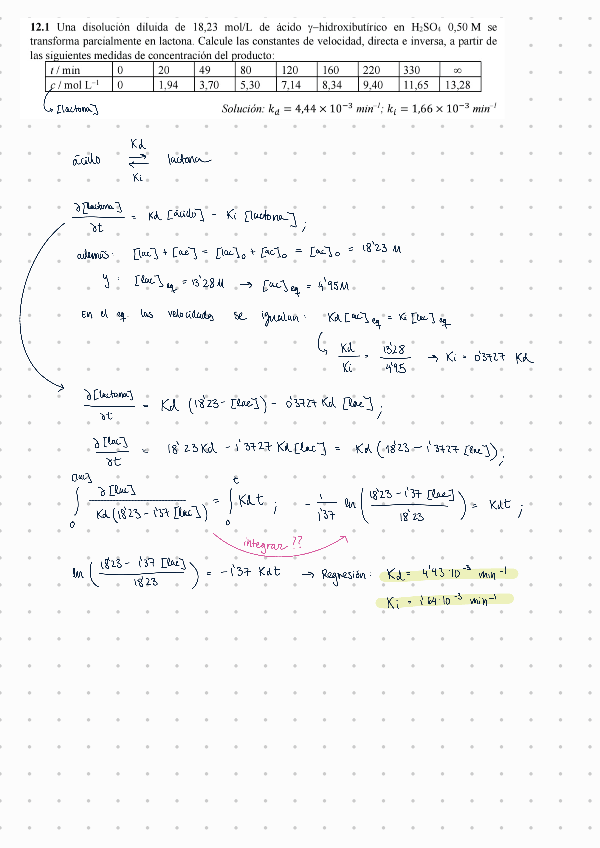 12.1 Una disolución diluida de 18,23 mol/L de ácido γ–hidroxibutírico en H₂SO₄ 0,50 M se
transforma parcialmente en lactona. Calcule las constantes de velocidad, directa e inversa, a partir de
las siguientes medidas de concentración del producto:
t / min 0 20 49 80 120 160 220 330 ∞
c / mol L⁻¹ 0 1,94 3,70 5,30 7,14 8,34 9,40 11,65 13,28
↳ [lactona]
Solución: k_d = 4,44 × 10⁻³ min⁻¹; k_i = 1,66 × 10⁻³ min⁻¹
ácido ⇌ lactona
Kd
Ki
∂[lactona]/∂t = Kd [ácido] - Ki [lactona];
además: [lac] + [ac] = [lac]₀ + [ac]₀ = [ac]₀ = 18'23 M
y: [lac]eq = 13'28M → [ac]eq = 4'95M
En el eq. las velocidades se igualan: Kd [ac]eq = Ki [lac]eq
↳ Kd/Ki = 13'28/4'95 → Ki = 0'3727 Kd
∂[lactona]/∂t = Kd (18'23 - [lac]) - 0'3727 Kd [lac];
∂[lac]/∂t = 18'23 Kd - 1'3727 Kd [lac] = Kd (18'23 - 1'3727 [lac]);
∫₀^[lac] ∂[lac]/Kd(18'23 - 1'37 [lac]) = ∫₀^t Kd t; - 1/1'37 ln (18'23 - 1'37 [lac]/18'23) = Kd t;
integrar ??
ln (18'23 - 1'37 [lac]/18'23) = -1'37 Kd t → Regresión: Kd = 4'43·10⁻³ min⁻¹
Ki = 1'64·10⁻³ min⁻¹